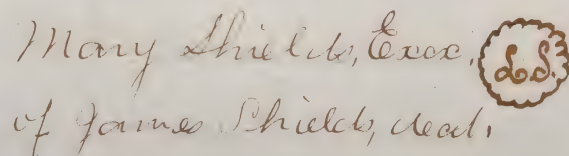 Mary Shields, Exox. L.S.
of James Shields, decd.